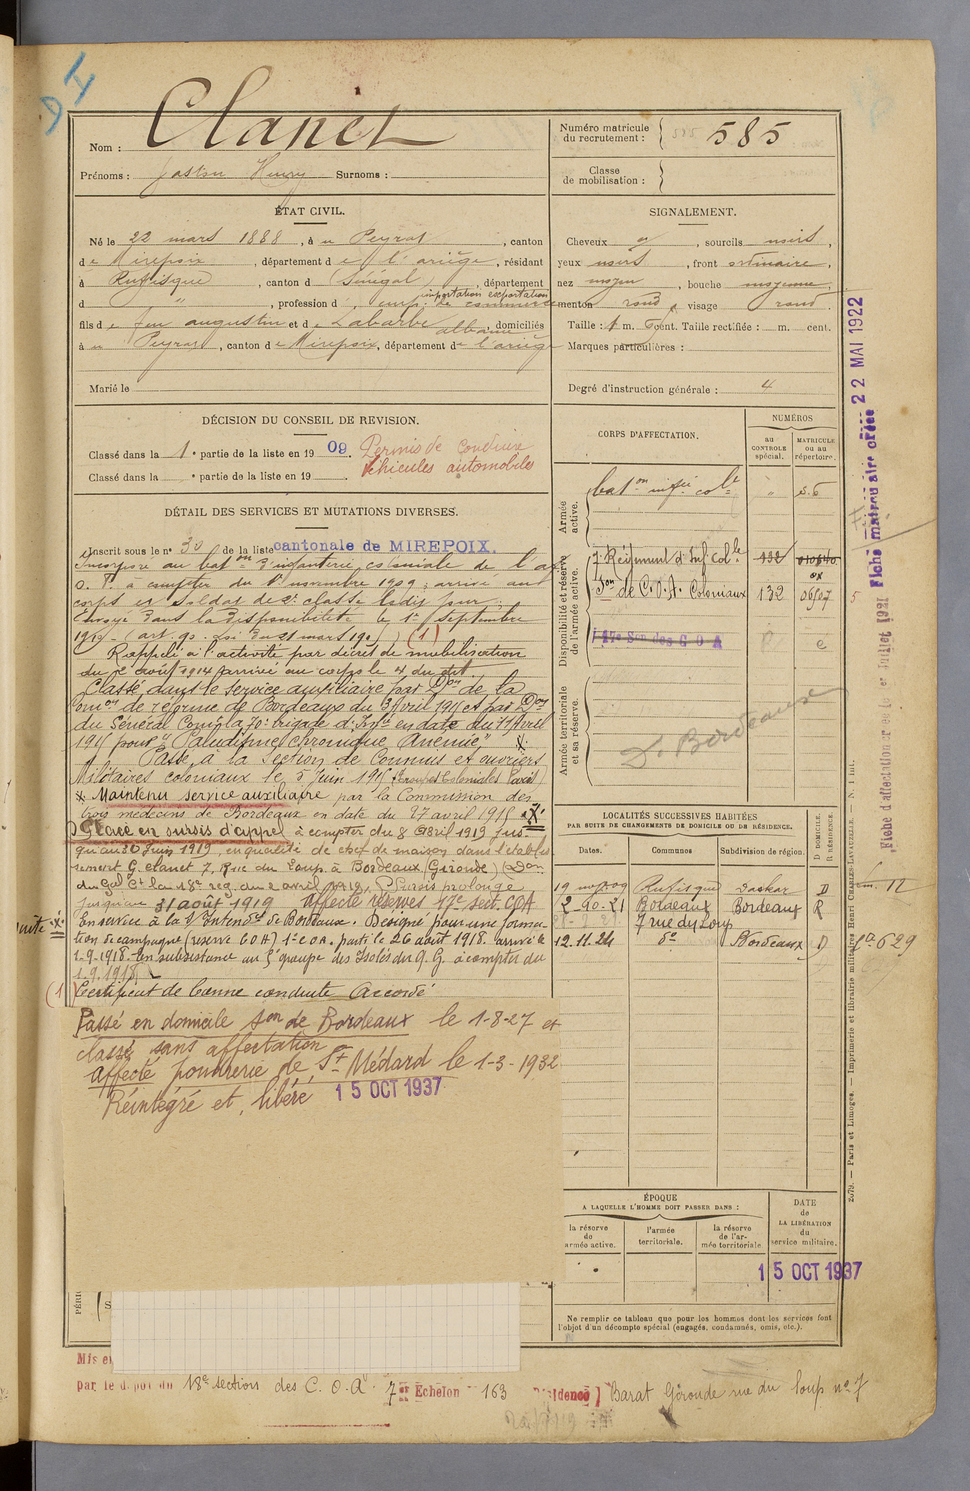 Nom : Clanet
Prénoms : Gaston Henry Surnoms :
Numéro matricule du recrutement : 585
Classe de mobilisation :
ÉTAT CIVIL.
Né le 22 mars 1888, à Peyrat, canton
de Mirepoix, département de l'ariège, résidant
à Rufisque, canton d Sénégal, département
importation exportation
d " , profession d' emp. de commerce
fils de feu augustin et de Labarbe albanie, domiciliés
à Peyrat, canton de Mirepoix, département de l'ariège
Marié le
SIGNALEMENT.
Cheveux , sourcils noirs,
yeux noirs, front ordinaire,
nez moyen, bouche moyenne,
menton rond, visage rond.
Taille : 1 m. cent. Taille rectifiée : m. cent.
Marques particulières :
Degré d'instruction générale : 4
DÉCISION DU CONSEIL DE REVISION.
Classé dans la 1e partie de la liste en 1909. Permis de conduire
véhicules automobiles
Classé dans la e partie de la liste en 19 .
DÉTAIL DES SERVICES ET MUTATIONS DIVERSES.
Inscrit sous le no 30 de la liste cantonale de MIREPOIX.
Incorporé au baton d'infanterie coloniale de l'a.
O. F. à compter du 1er novembre 1909; arrivé au
corps et soldat de 2e classe le dit jour.
Envoyé dans la disponibilité le 1er septembre
(art. 90. Loi du 21 mars 190 ) (1)
Rappelé à l'activité par décret de mobilisation
du 2 août 1914 arrivé au corps le 4 du dit.
Classé dans le service auxiliaire par Don de la
Comon de réforme de Bordeaux du 3 avril 1915 et par Don
du Général Comt la 70e brigade d'Infie en date du 11 avril
1915 pour "Paludisme chronique Anémie" x.
Passé à la Section de Commis et ouvriers
Militaires coloniaux le 5 Juin 1915
x Maintenu service auxiliaire par la Commission des
trois médecins de Bordeaux en date du 27 avril 1915 x
Placé en sursis d'appel à compter du 8 avril 1919 jus
qu'au 30 Juin 1919, en qualité de chef de maison dans l'établis
sement G. Clanet 7, Rue du Loup à Bordeaux (Gironde) (Don
du Gal Ct la 18e reg. du 2 avril 1919. Sursis prolongé
jusqu'au 31 août 1919 Affecté réserves 17e Sect. COA
En service à la S/Intendce de Bordeaux. Désigné pour une forma-
tion de campagne (réserve COA) 1er COA. parti le 26 août 1918. arrivé le
1-9-1918. En subsistance au groupe des Isolés du Q. G. à compter du
1.9.1918
(1) Certificat de bonne conduite Accordé
Passé en domicile Son de Bordeaux le 1-8-27 et
classé sans affectation
Affecté poudrerie de St Médard le 1-3-1932
Réintégré et libéré 15 OCT 1937
CORPS D'AFFECTATION.
NUMÉROS
au CONTRÔLE spécial.
MATRICULE ou au répertoire.
Armée active.
baton infie colle " 
Disponibilité et réserve de l'armée active.
7 Régiment d'Inf Colle 132 010640
Son de C.O.A. Coloniaux 132 06507
17e Son des C O A
Armée territoriale et sa réserve.
D. Bordeaux
LOCALITÉS SUCCESSIVES HABITÉES
PAR SUITE DE CHANGEMENTS DE DOMICILE OU DE RÉSIDENCE.
Dates. Communes Subdivision de région. D DOMICILE. R RÉSIDENCE.
19 nov 09 Rufisque Dakar D
2-90-21 Bordeaux Bordeaux R
7 rue du Loup
12.11.24 do Bordeaux D
ÉPOQUE
A LAQUELLE L'HOMME DOIT PASSER DANS :
la réserve de l'armée active.
l'armée territoriale.
la réserve de l'armée territoriale.
DATE de LA LIBÉRATION du service militaire.
15 OCT 1937
Ne remplir ce tableau que pour les hommes dont les services font
l'objet d'un décompte spécial (engagés, condamnés, omis, etc.).
Mis e
par le dépôt du 18e section des C. O. A. 7er Echelon 163 Résidence Barat Gironde rue du loup no 7
Fiche matriculaire créée 22 MAI 1922
Fiche d'affectation créée le 1er Juillet 1921
Paris et Limoges. — Imprimerie et librairie militaires Henri CHARLES-LAVAUZELLE.